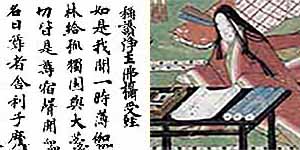 稱讃浄土佛攝受經
如是我聞一時薄伽
林給孤獨園與大苾
切皆是尊宿聲聞
名曰尊者舍利子摩